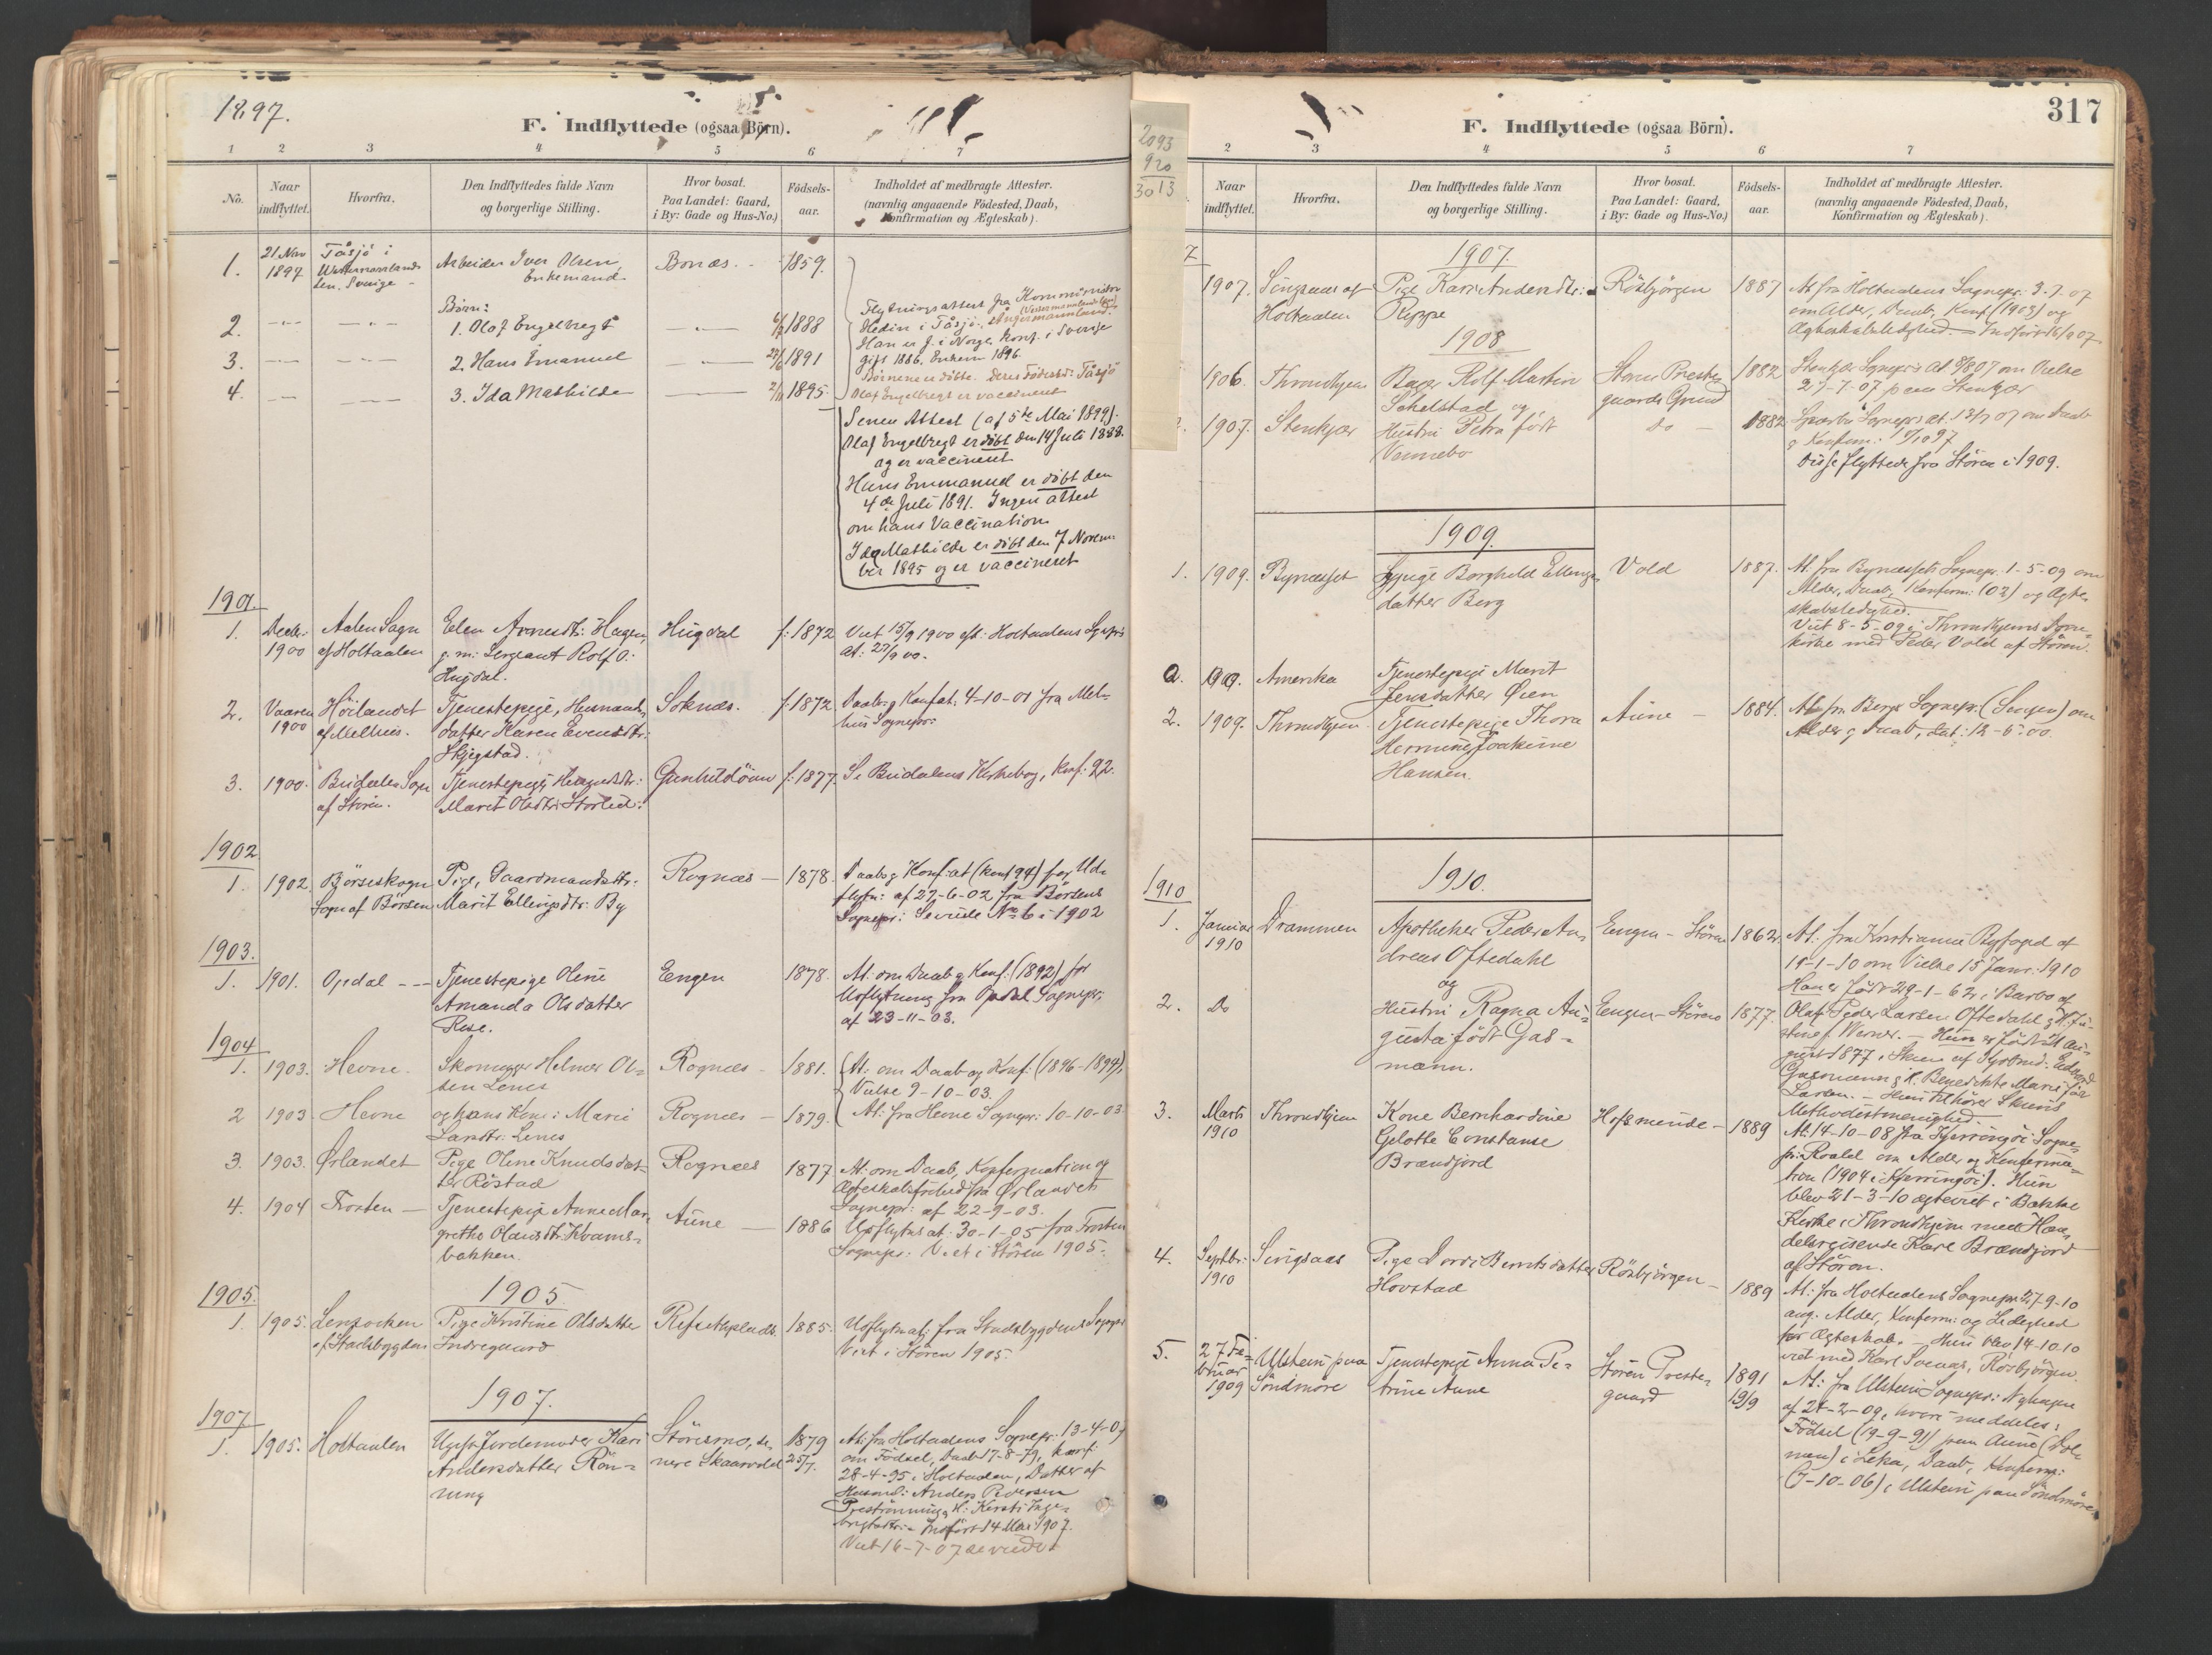 1897.
F. Indflyttede (ogsaa Börn).
1 2 3 4 5 6 7
No. Naar indflyttet. Hvorfra. Den Indflyttedes fulde Navn og borgerlige Stilling. Hvor bosat. Paa Landet: Gaard, i By: Gade og Hus-No.) Födsels-aar. Indholdet af medbragte Attester. (navnlig angaaende Födested, Daab, Konfirmation og Ægteskab).
1. 21 Nov 1897 Tåsjö i Westernorrlands Len. Sverige - Arbeider Iver Olsen Enkemand Bonæs. 1859.
Börn:
2. 1. Olaf Engelbregt 1888
3. 2. Hans Emanuel 1891
4. 3. Ida Mathilde 1895.
Flytningsattest fra Kommunion
Hedin i Tåsjö, Ångermannland.
Han er f. i Norge, Konf. i Sverige
gift 1886. Enkem 1896.
Börnene er döbte. Deres Födested: Tåsjö
Olaf Engelbregt er vaccineret
Senere Attest (af 5te Mai 1899):
Olaf Engelbregt er döbt den 14 Juli 1888.
og er vaccineret
Hans Emmanuel er döbt den
4de Juli 1891. Ingen attest
om hans Vaccination
Ida Mathilde er döbt den 7 Novem-
ber 1895 og er vaccineret
1901.
1. Decbr. 1900 Aalen Sogn af Holtaalen Elen Arnesdtr: Hagen, g. m: Sergeant Rolf O. Hugdal. Hugdal f: 1872 Viet 15/9 1900 eft: Holtaalens Sognepr: at: 27/9 00.
2. Vaaren 1900 Höilandet af Melhus. Tjenestepige, Husmands-datter Karen Evensdtr: Skjegstad. Soknæs. f: 1872 Daabs og Konfat: 4-10-01 fra Mel-hus Sognepr:
3. 1900. Budalen Sogn af Stören. Tjenestepige, Marit Olsdtr: Storlid. Gunhildöien f: 1877. Se Budalens Kirkebog, Konf: 92.
1902
1. 1902. Börseskogn Sogn af Börsen Pige, Gaardmandsdtr: Marit Ellingsdtr: By Rognæs - 1878. Daabs og Konf:at (konf 94) for Ud-flytn: af 27-6-02 fra Börsens Sognepr: Se viede No 6 i 1902
1903.
1. 1901. Opdal - - - Tjenestepige Oline Amanda Olsdatter Rise. Engen 1878. At: om Daab og Konf. (1892) for Udflytning fra Opdal Sognepr: af 23-11-03.
1904
1. 1903. Hevne. Skomager Helmer Ol-sen Lenes Rognæs - 1881. At: om Daab og Konf: (1896-1894), Vielse 9-10-03.
2 1903 Hevne og hans Kone: Marie Larsdtr: Lenes Rognæs - 1879. At: fra Hevne Sognepr: 10-10-03
3. 1903. Ørlandet Pige Oline Knudsdat-ter Röstad Rognæs 1877 At: om Daab, Konfirmation og Ægteskabsfrihed fra Ørlandets Sognepr: af 22-9-03.
4. 1904 Frosten - Tjenestepige Anne Mar-grethe Olausdtr: Kvams-bakken. Aune - 1886 Udflytn.at: 30-1-05 fra Frosten Sognepr: Viet i Stören 1905.
1905. 1905.
1. 1905. af Stadsbygden Pige Kristine Olsdatter Indregaard 1885. Udflytn.at: fra Stadsbygdens Sognepr Viet i Stören 1905.
1907 1907.
1. 1905. Holtaalen Ugift Jordemoder Kari Andersdatter Rön-ning Störesmo, se-nere Skaarvold 1879 25/7. At: fra Holtaalens Sognepr: 13-4-07
om Födsel, Daab 17-8-79, konf:
28-4-95 i Holtaalen, Datter af
Husmd: Anders Pedersen
Preströnning og H: Kersti Inge-
brigtsdtr: - Indfört 14 Mai 1907.
Viet 16-7-07 se viede
2093
920
3013
317
F. Indflyttede (ogsaa Börn).
2 3 4 5 6 7
Naar indflyttet. Hvorfra. Den Indflyttedes fulde Navn og borgerlige Stilling. Hvor bosat. Paa Landet: Gaard, i By: Gade og Hus-No.) Födsels-aar. Indholdet af medbragte Attester. (navnlig angaaende Födested, Daab, Konfirmation og Ægteskab).
1907.
1907. Singsaas af Holtaalen Pige Kari Andersdtr: Reppe Rösbjörgen 1887 At fra Holtaalens Sognepr: 3-7-07
om Alder, Daab, Konf (1903) og
Ægteskabsledighed. - Indfört 16/9 07
1908
1906. Throndhjem Bager Rolf Martin Sakelstad og Störens Preste-gaards Grund 1882 Stenkjær Sognepr: at 07 om Vielse
27-7-07 paa Stenkjær
1907. Stenkjær Hustru Petra født Vennebo do - 1882 Sparbu Sognepr: at. 07 om Daab
og Konfirm:
Disse flyttede fra Stören i 1909.
1909.
1. 1909. Bynæsset Sypige Borghild Ellings-datter Berg Vold 1887. At. fra Bynæssets Sognepr. 1-5-09 om
Alder, Daab, Konfirm: (02) og Ægte-
skabsledighed.
Viet 8-5-09 i Throndhjems
kirke med Peder Vold af Stören.
a. 1909. Amerika Tjenestepige Marit Jensdatter Øien
2. 1909. Throndhjem Tjenestepige Thora Hermine Joakime Hansen. Aune - 1884. At fra Bergs Sognepr. (Senjen) om
Alder og Daab, dat: 12-6-00.
1910 1910.
1. Januar 1910 Drammen Apotheker Peder An-dreas Oftedahl og Engen - Stören 1862. At: fra Kristiania Byfoged af
15-1-10 om Vielse 15 Janr. 1910
Han er födt 29-1-62 i Barbo af
2. Do Hustru Ragna Au-gusta födt Gas-mann. Engen - Stören 1877. Olaf Peder Larsen Oftedahl og H. Ju-
stine f. Werner. - Hun er födt Au-
gust 1877 i Skien af Edvard
Gasmann og H. Benedikte Marie f.
Larsen. - Hun tilhörer Skiens
Methodistmenighed.
3. Marts 1910 Throndhjem Kone Bernhardine Gelotte Constanse Brændjord Hofsmende - 1889 At. 14-10-08 fra Kjerringöi Sogne-
pr: Roald om Alder og Konfirma-
tion (1904 i Kjerringöi). Hun
blev 21-3-10 ægteviet i Bakke
Kirke i Throndhjem med Han-
delsreisende Karl Brændjord
af Stören.
4. Septbr: 1910 Singsaas Pige Dordi Berntsdatter Hovstad Rösbjörgen - 1889 At: fra Holtaalens Sognepr: 27-9-10
ang. Alder, Konfirm: og Ledighed
for Ægteskab. - Hun blev 14-10-10
viet med Karl Rösbjörgen.
5. 27 Fe-bruar 1909 Ulstein paa Söndmöre Tjenestepige Anna Pe-trine Aune Stören Preste-gaard 1891 19/9 At: fra Ulstein Sognepr:
af 24-2-09, hvori meddeles:
Födsel (19-9-91) paa Aune
i Leka, Daab, Konfirm:
(7-10-06) i Ulstein paa Söndmöre